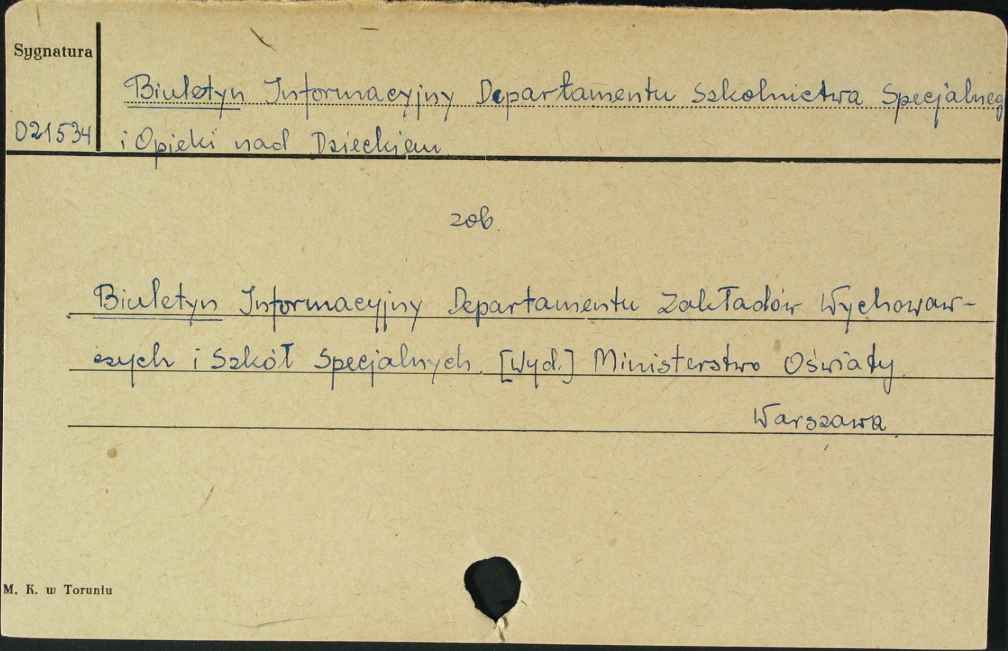 Sygnatura
Biuletyn Informacyjny Departamentu Szkolnictwa Specjalneg
021534 i Opieki nad Dzieckiem
zob.
Biuletyn Informacyjny Departamentu Zakładów Wychowaw-
czych i Szkół Specjalnych. [Wyd.] Ministerstwo Oświaty.
Warszawa.
M. K. w Toruniu